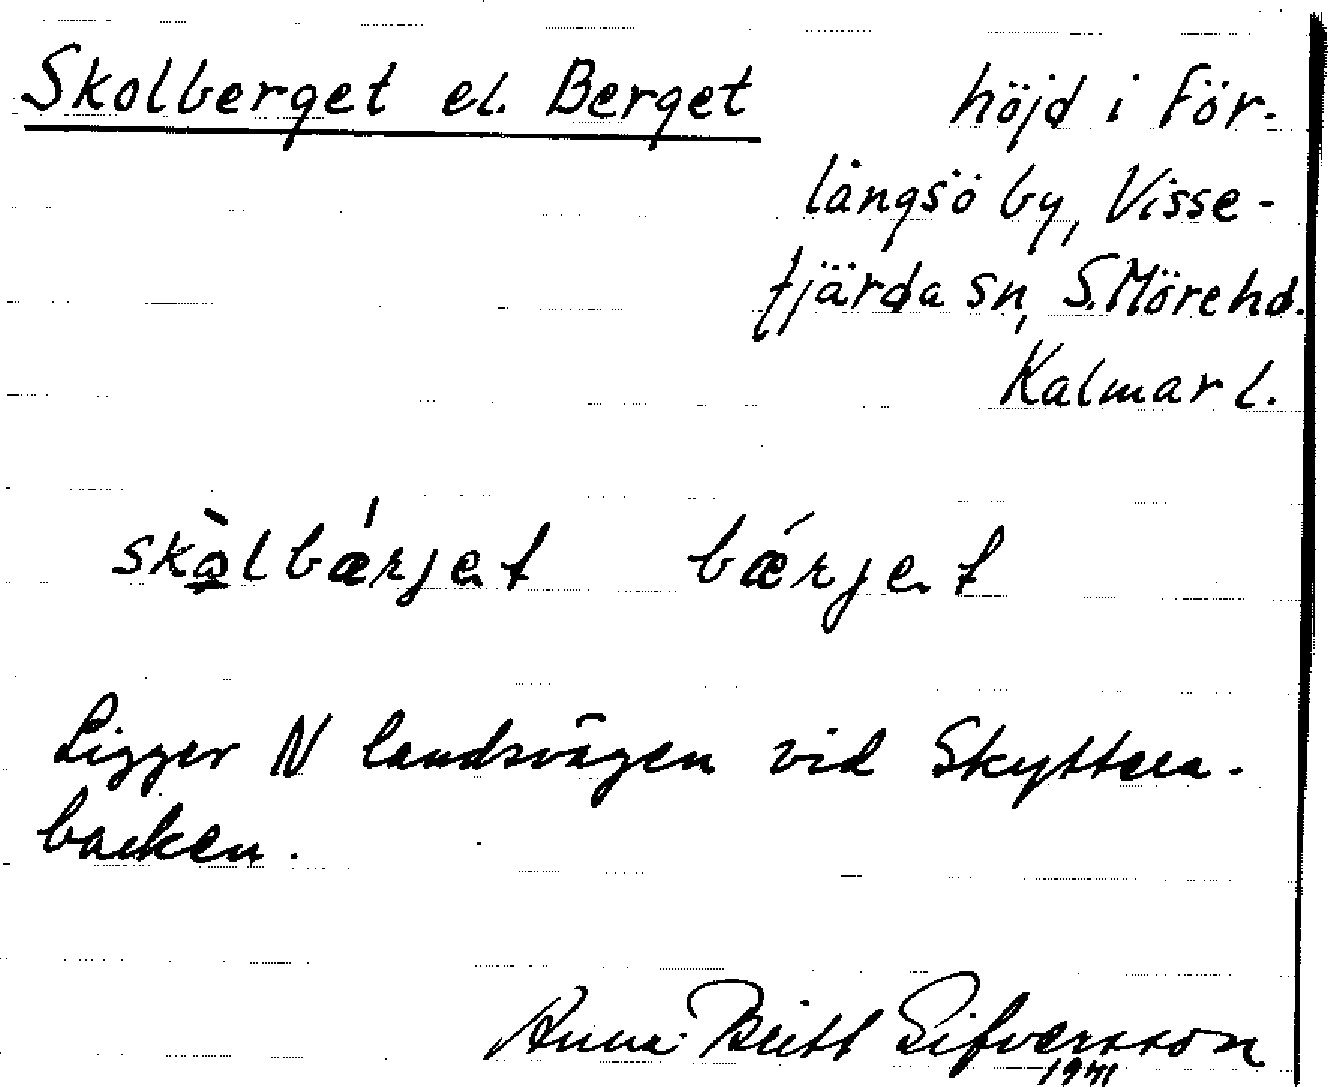 Skolberget el. Berget höjd i För-
långsö by, Visse-
fjärda sn, S. Möre hd.
Kalmar l.
skàlbǽrjet bǽrjet
Ligger N landsvägen vid Skyttea-
backen.
Anna-Britt Sifversson
1941